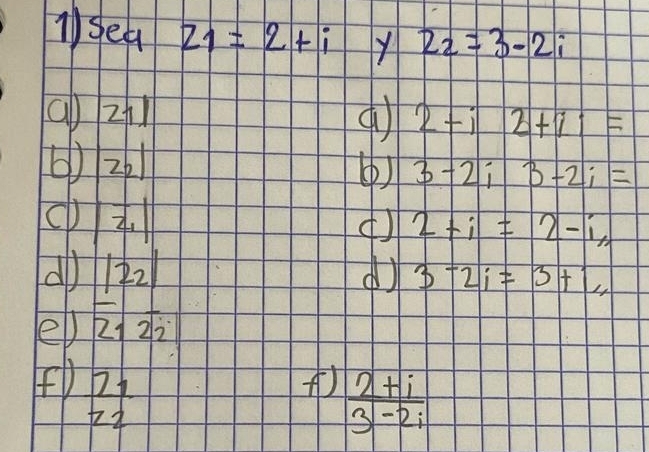 1) Sea z1 = 2 + i y z2 = 3 - 2i
a) |z1|
b) |z2|
c) |z̅1|
d) |z2|
e) z̅1 z̅2
f) z1
z2
a) 2 + i 2 + i i =
b) 3 - 2i 3 - 2i =
c) 2 + i = 2 - i,,
d) 3 - 2i = 3 + i,,
f) 2 + i
3 - 2i